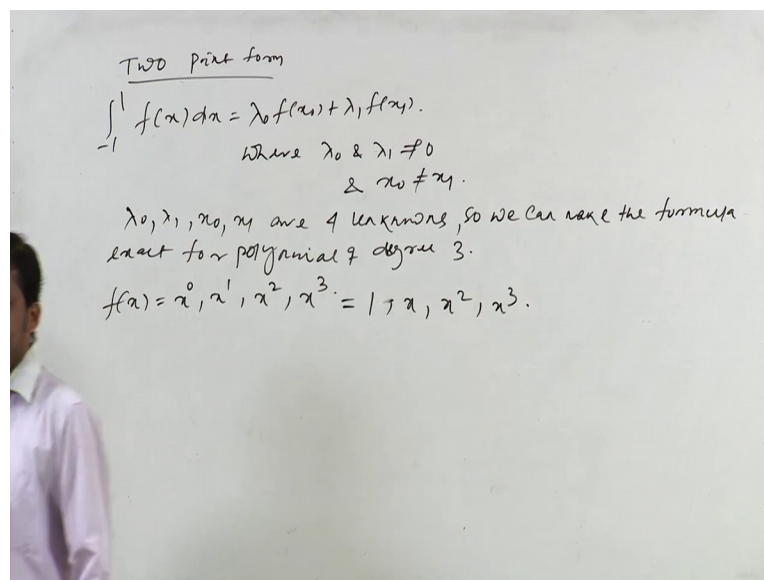 Two point form
∫₋₁¹ f(x) dx = λ₀ f(x₀) + λ₁ f(x₁).
where λ₀ & λ₁ ≠ 0
& x₀ ≠ x₁.
λ₀, λ₁, x₀, x₁ are 4 unknowns, so we can make the formula
exact for polynomial of degree 3.
f(x) = x⁰, x¹, x², x³. = 1, x, x², x³.